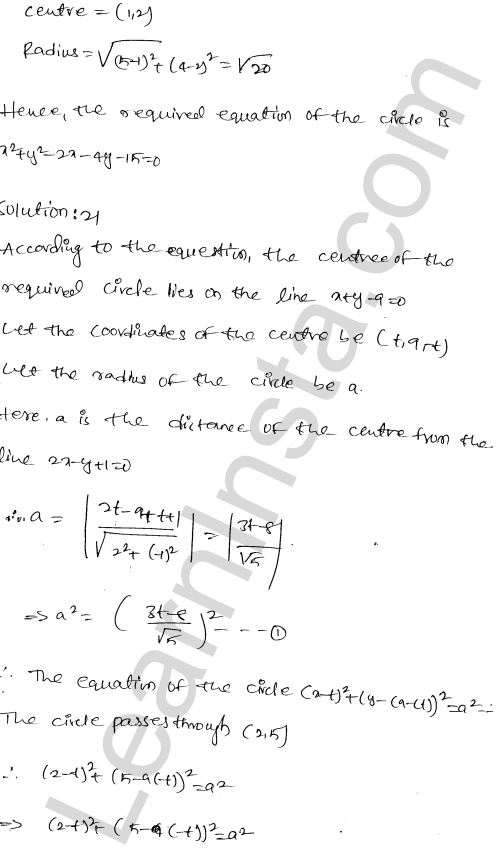 centre = (1,2)
Radius = √(5-1)² + (4-2)² = √20
Hence, the required equation of the circle is
x²+y²-2x-4y-15=0
Solution: 21
According to the question, the centre of the
required circle lies on the line x+y-9=0
Let the coordinates of the centre be (t,9-t)
Let the radius of the circle be a.
Here, a is the distance of the centre from the
line 2x-y+1=0
∴ a = |2t-9+t+1 / √2²+(-1)²| = |3t-8 / √5|
⇒ a² = (3t-8 / √5)² - - - ①
∴ The equation of the circle (x-t)²+(y-(9-t))²=a²
The circle passes through (2,5)
∴ (2-t)²+(5-9(-t))²=a²
⇒ (2-t)²+(5-9(-t))²=a²
LearnInsta.com